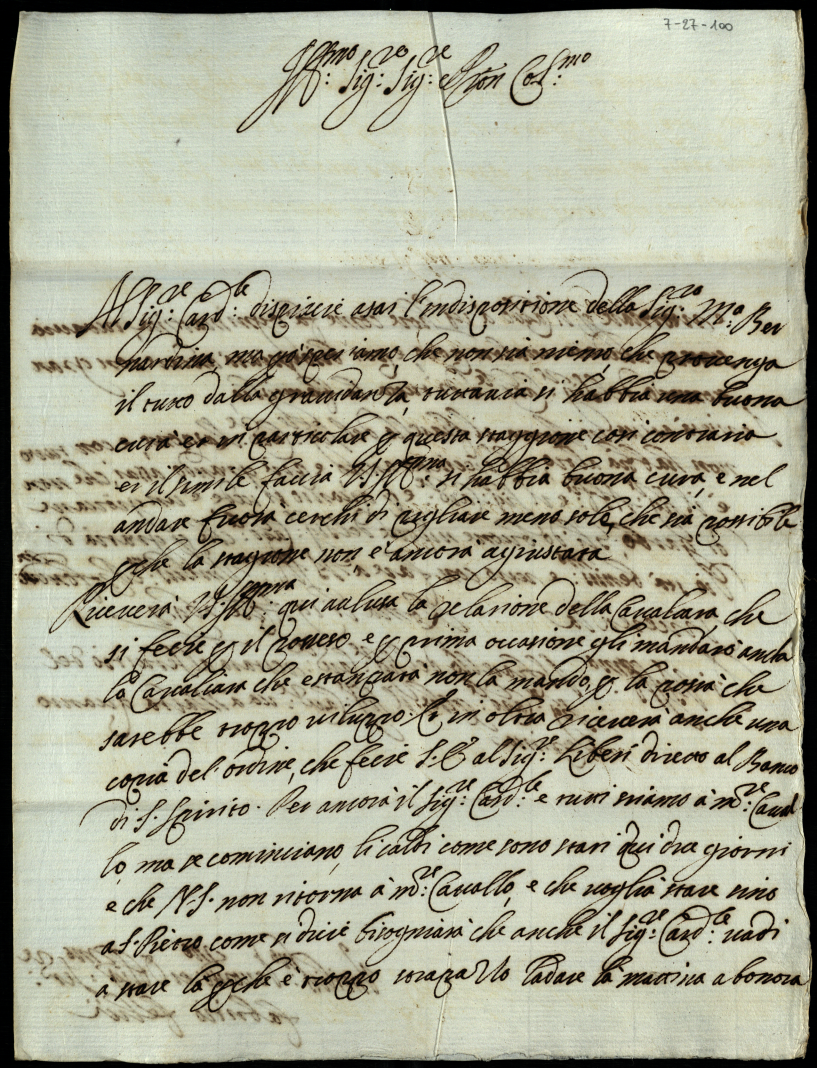 7-27-100
Ill:mo Sig:re Sig:re e Pron Col:mo
Al Sig:re Card:le dispiacie asai l'indispositione della Sig:ra M:a Ber
nardina, ma già speriamo, che non sia meno, che provenga
il tutto dalla gravidanza, tuttavia si habbia una buona
cura et in particolare p questa staggione così contraria
et il simile faccia V.S.Ill:ma si habbia buona cura, e nel
andare fuora cerchi di pegliare meno sole, che sia possibile
p che la stagione non è ancora agiustata
Riceverà V.S.Ill:ma qui aclusa la relazione della Cavalcata, che
si fecie p il possesso e p prima occasione gli mandarò anche
la Cavalcata che è stampata non la mando p la posta che
sarebbe troppo viluppo. Et in oltra riceverà anche una
copia del ordine, che fecie S. E. al Sig:re Liberi direto al Banco
di S. Spirito. Per ancora il Sig:re Card:le e tutti stiamo à M:te Caval
lo, ma se cominciano li caldi come sono stati qui dua giorni
e che N. S. non ritorna à M:te Cavallo, e che voglia stare sino
a S. Pietro come si dicie bisogniarà che anche il Sig:re Card:le vadi
a stare la p che è troppo strapazzo l'adare la mattina a bonora